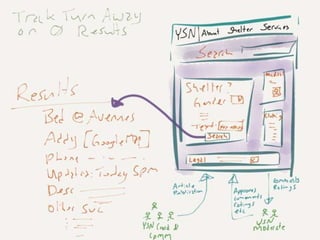 Track Turn Away
on 0 Results
YSN About Shelter Services
Search
Shelter?
Gender
Text:
Search
Legal
Results
Bed @ Avenues
Addy [Google Map]
Phone
Updates: Today 5pm
Desc
Other Svc
Article
Publication
Approves
comments
ratings
etc
Comments
Ratings
YSN Coord &
Comm
YSN
Moderate